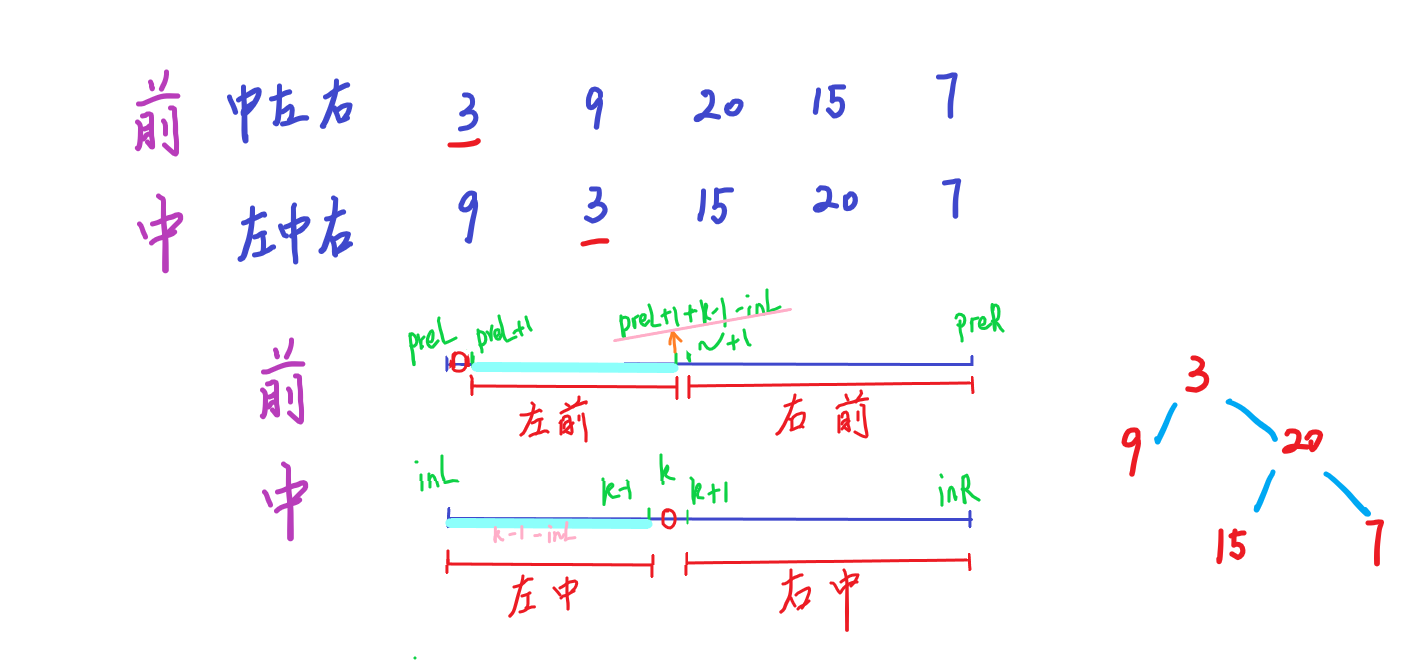 前 中左右 3 9 20 15 7
中 左中右 9 3 15 20 7
preL preL+1 preL+1+k-1-inL ~+1 preR
前
左前 右前
inL k-1 k k+1 inR
中
k-1-inL
左中 右中
3
9 20
15 7